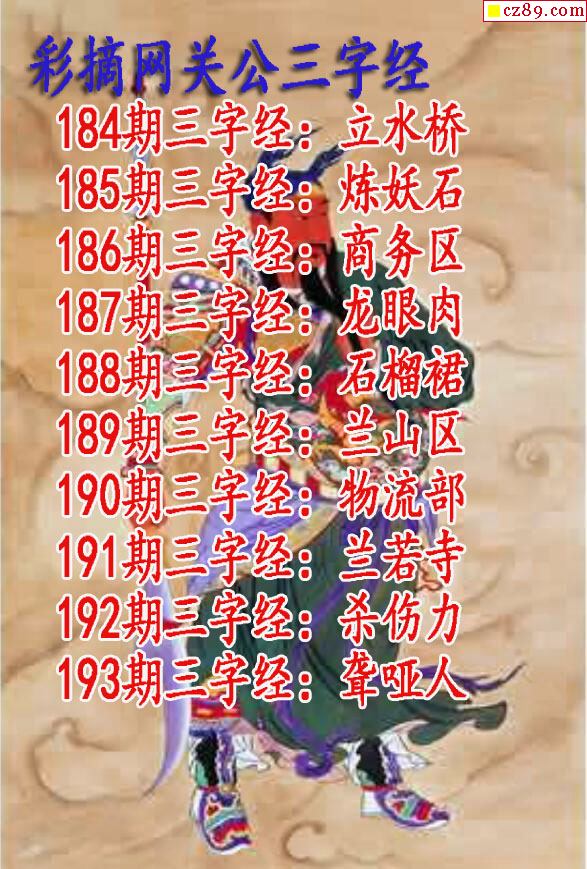 cz89.com
彩摘网关公三字经
184期三字经：立水桥
185期三字经：炼妖石
186期三字经：商务区
187期三字经：龙眼肉
188期三字经：石榴裙
189期三字经：兰山区
190期三字经：物流部
191期三字经：兰若寺
192期三字经：杀伤力
193期三字经：聋哑人